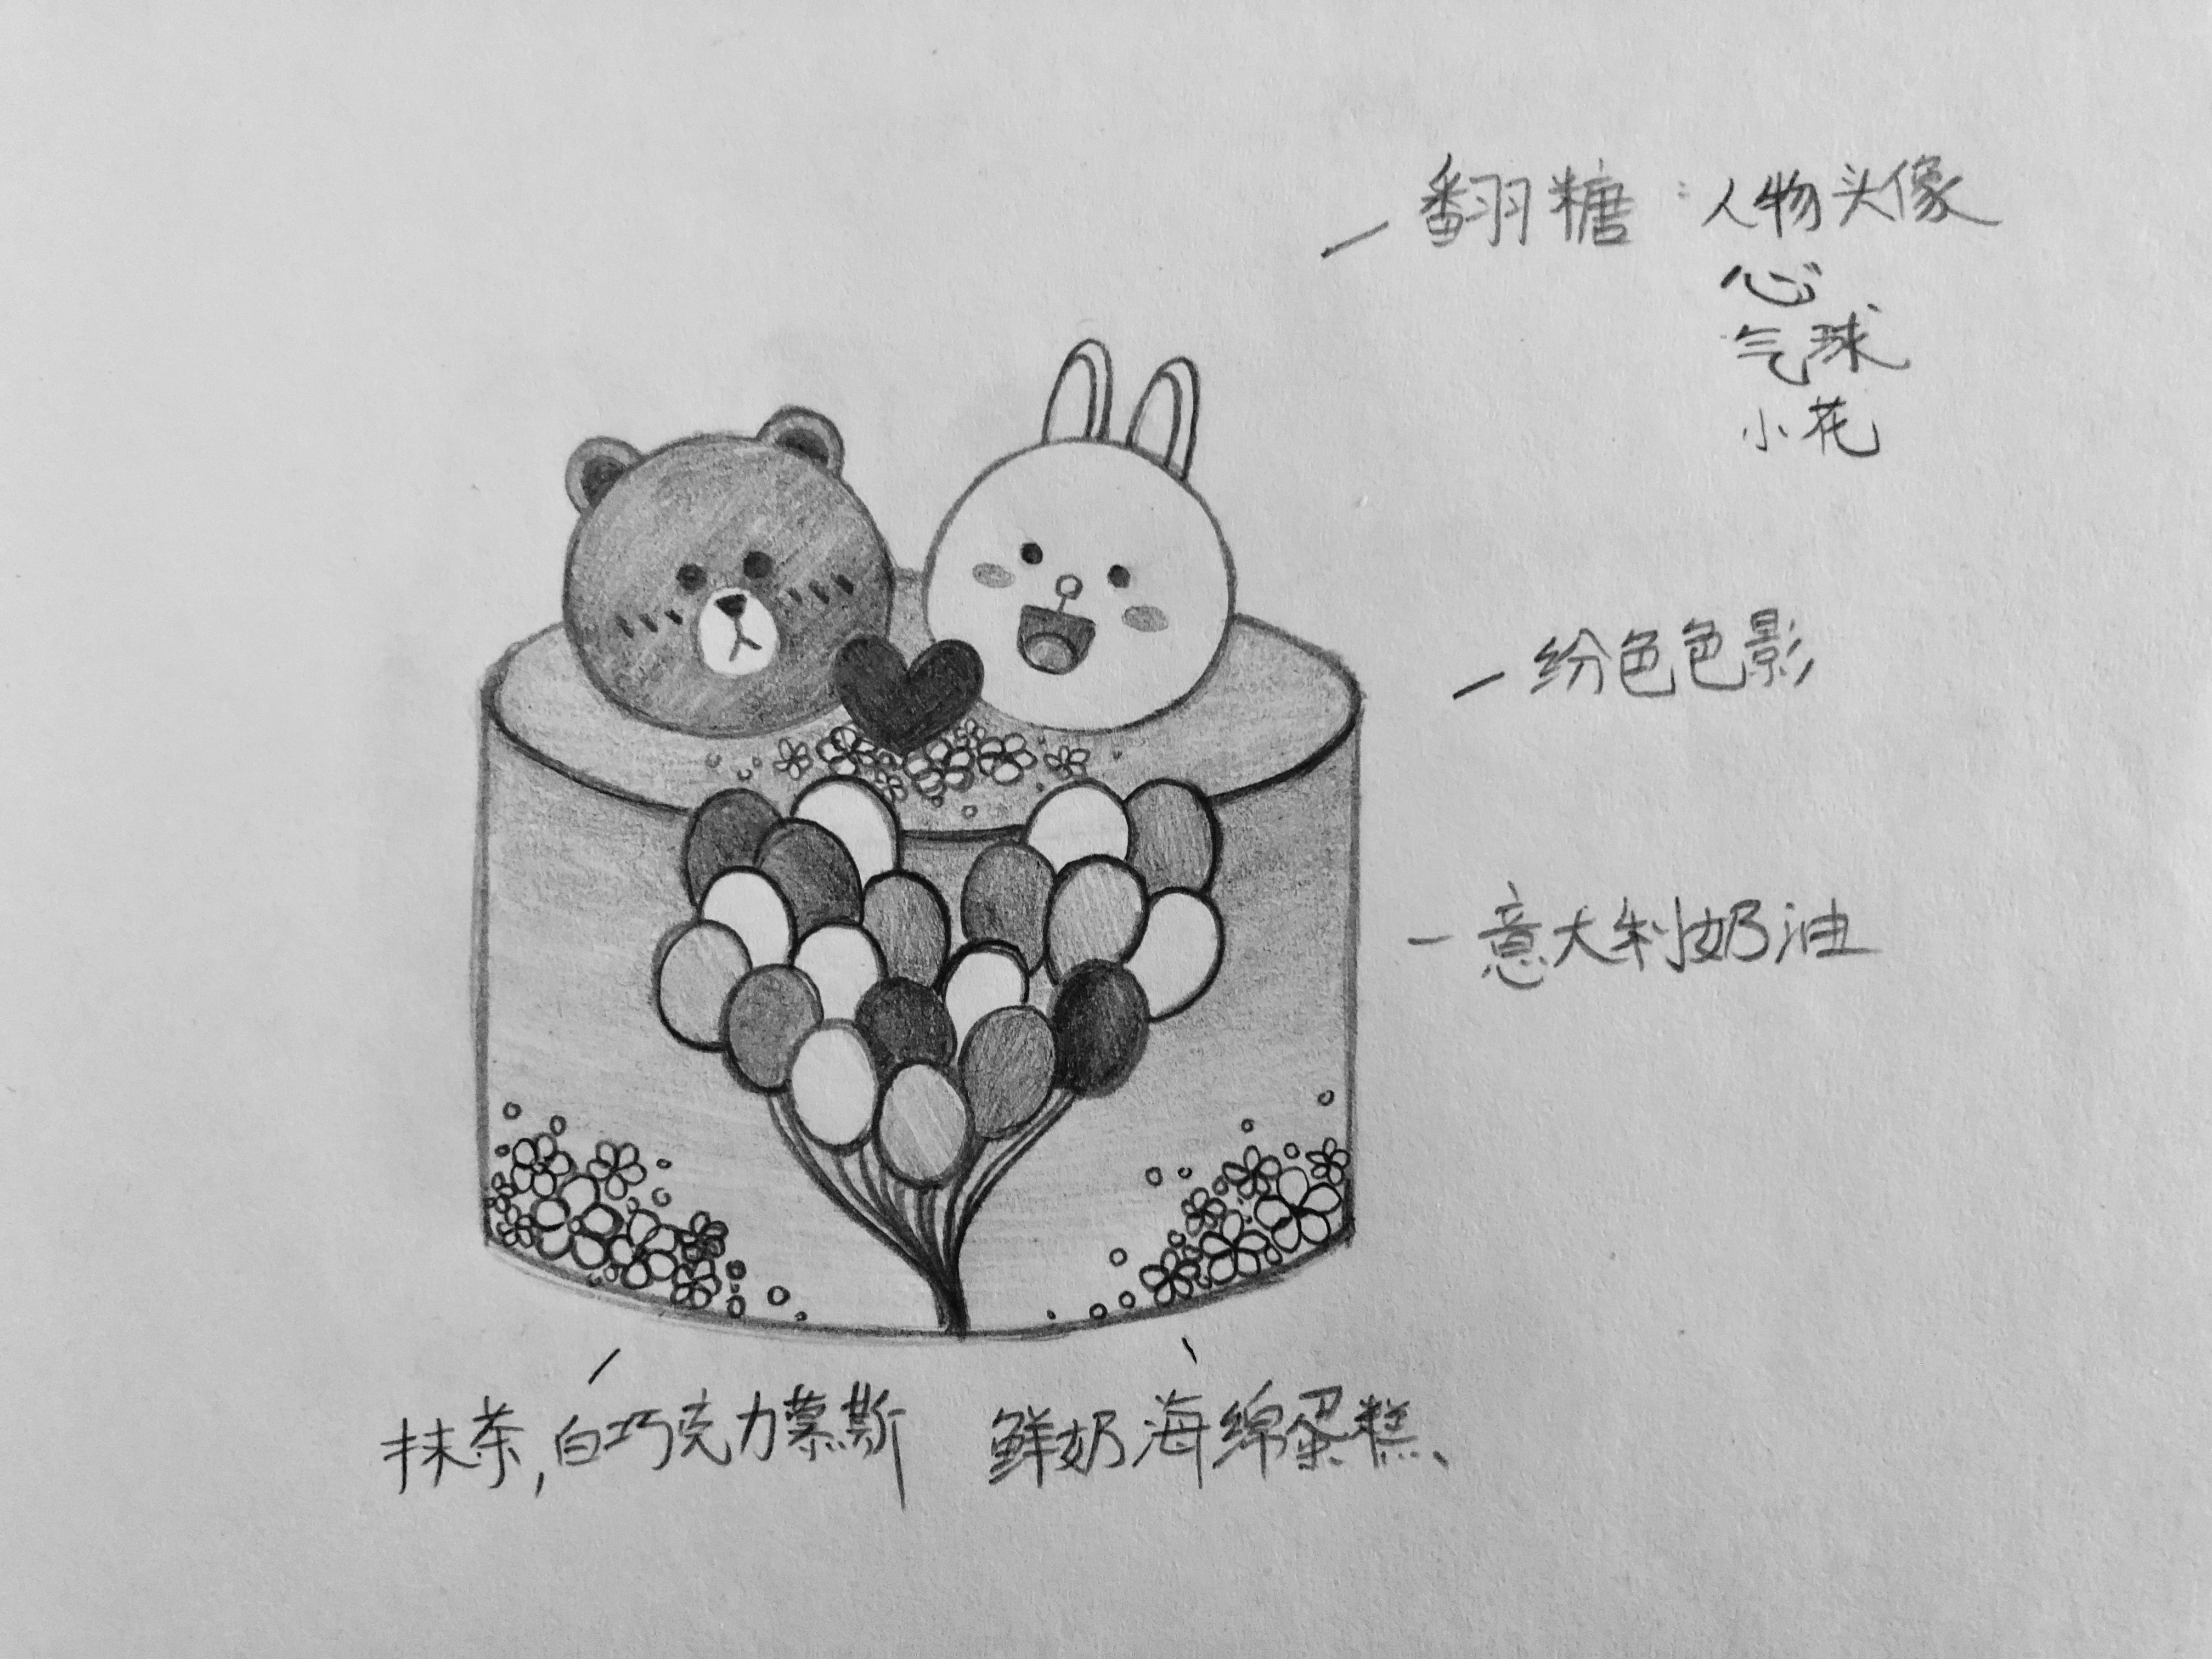 翻糖：人物头像
心
气球
小花
纷色色影
意大利奶油
抹茶,白巧克力慕斯
鲜奶海绵蛋糕、